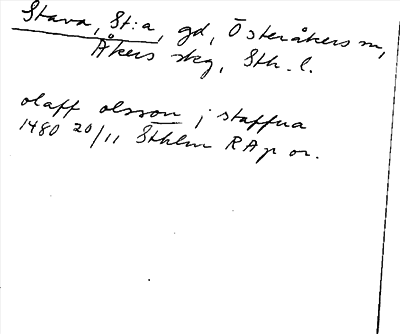 Stava, St:a, gd, Österåkers sn,
Åkers skg, Sth. l.
olaff olsson j staffua
1480 20/11 Sthlm RAp or.